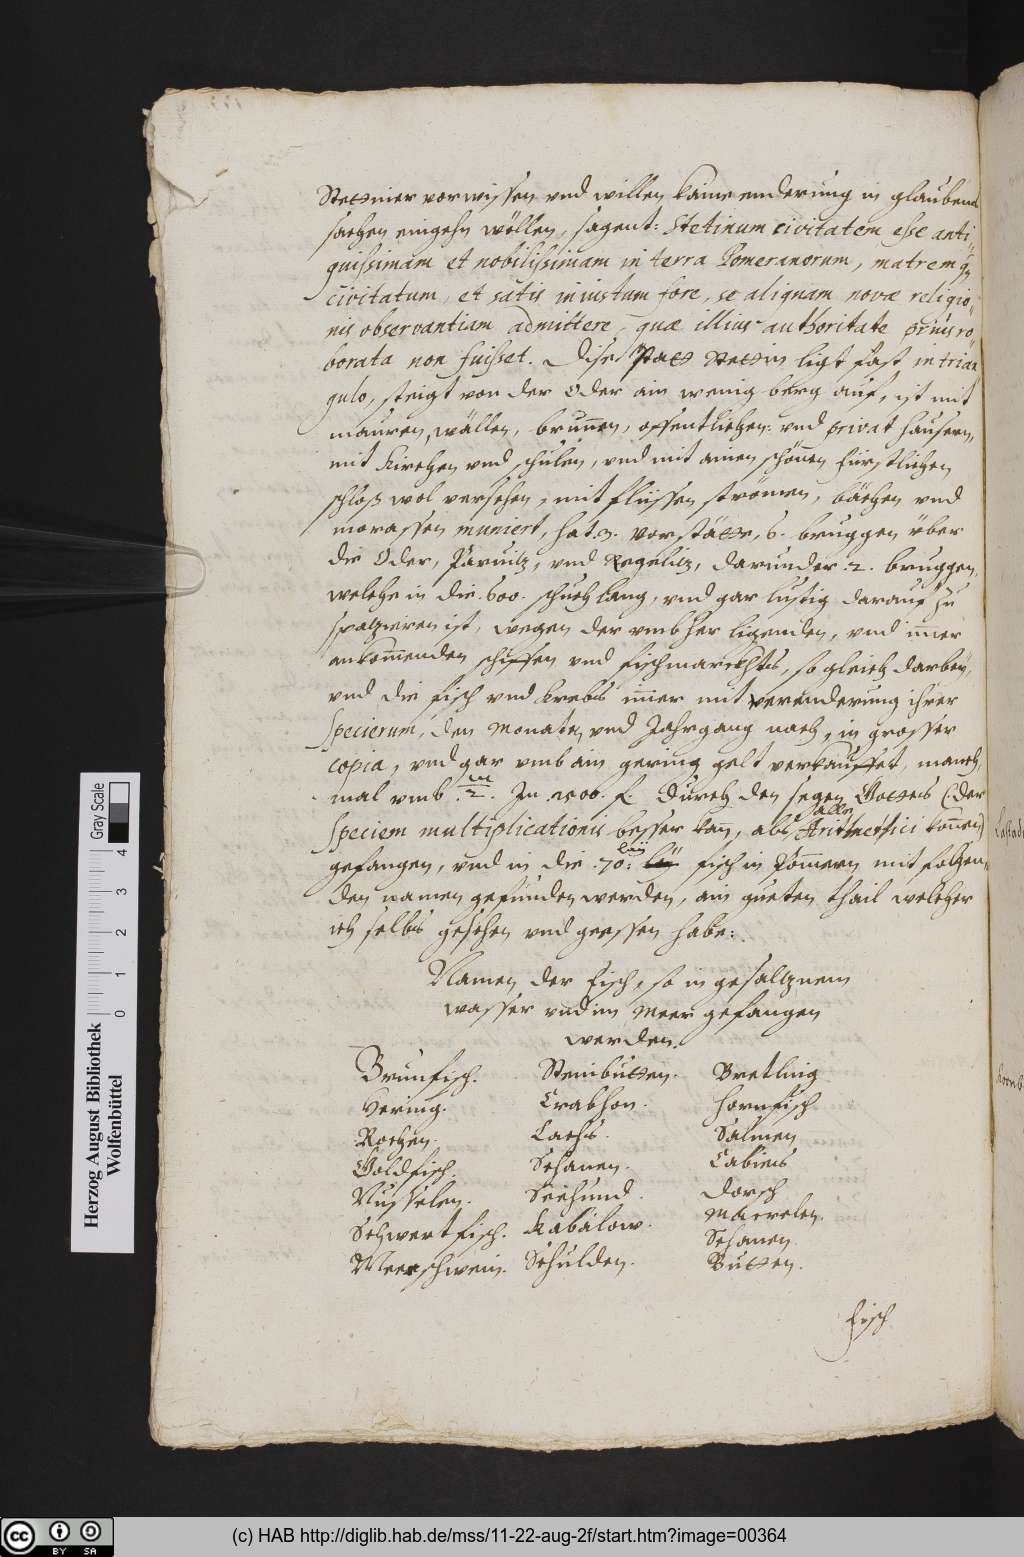 Stettiner vorwissen vnd willen kaine enderung in glaubens
sachen eingehn wöllen, sagent: Stetinum civitatem esse anti-
quissimam et nobilissimam in terra Pomeranorum, matremq3
civitatum, et satis iniustum fore, se aliquam novæ religio-
nis observantiam admittere, quæ illius authoritate prius ro-
borata non fuisset. Dise Statt Stettin ligt fast in trian
gulo, steigt von der Oder ain wenig berg auf, ist mit
mauren, wällen, brunnen, offentlichen: vnd privat heusern,
mit Kirchen vnd schulen, vnd mit ainen schönen fürstlichen
schloß wol versehen, mit flüssen strömen, bächen vnd
morassen muniert, hat .3. vorstätte, 6. bruggen über
die Oder, Parnitz, vnd Regelitz, darunder .2. bruggen,
welche in die .600. schuch lang, vnd gar lustig darauf zu
spatzieren ist, wegen der vmbher ligenden, vnd im̄er
ankom̄enden schiffen vnd fischmarckhts, so gleich darbey,
vnd die fisch vnd krebs im̄er mit verenderung ihrer
Specierum, den Monaten vnd Jahrgang nach, in grosser
copia, vnd gar vmb ain gering gelt verkauffet, manch-
mal vmb .2. In .1500. f. durch den segen Gottes (der
Speciem multiplicationis besser kan, als alle Arithmetici können)
gefangen, vnd in die .70. fisch in Pomern mit folgen-
den namen gefunden werden, ain gueten thail welcher
ich selbs gesehen vnd gessen habe:
Namen der Fisch, so in gesaltznem
wasser vnd im Meer gefangen
werden.
Brunfisch. Steinbutten. Bretling
Hering. Crabhon. Hornfisch
Rochen. Lachs. Salmen
Goldfisch. Schanen. Cabiens
Musselen. Seehund. Dorsch
Schwertfisch. Kabälow. Macrelen.
Meerschwein. Schulden. Schanen.
Butten.
Fisch
Herzog August Bibliothek
Wolfenbüttel
Gray Scale
0 1 2 3 4
cc BY SA
(c) HAB http://diglib.hab.de/mss/11-22-aug-2f/start.htm?image=00364